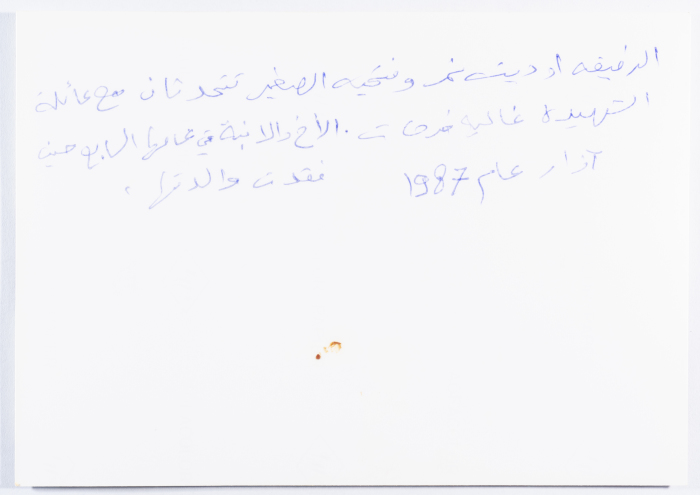 الرفيقه اوديت نمر وفتحيه الصغير تتحدثان مع عائلة
الشهيدة غالية فرحات. الأخ والابنة في عامها السابع حين
آذار عام 1987 فقدت والدتها.